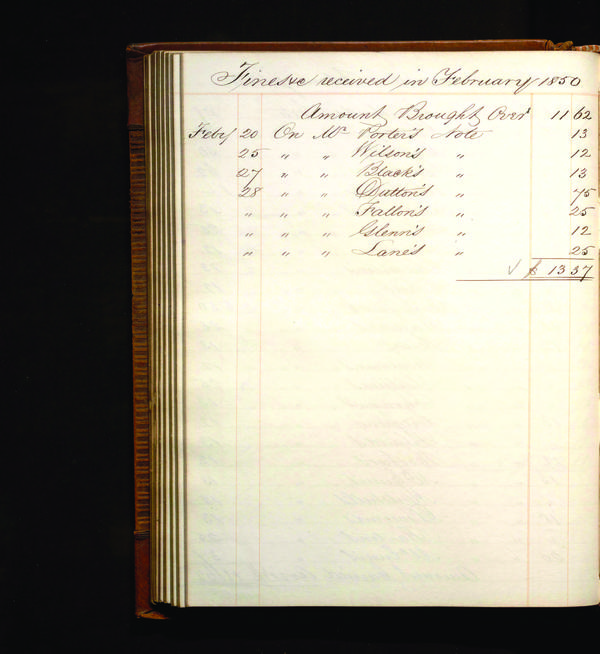 Fines &c received in February 1850
Amount Brought Over 11 62
Feby 20 On Mr Porter's Note 13
25 " " Wilson's " 12
27 " " Black's " 13
28 " " Dutton's " 75
" " " Fallon's " 25
" " " Glenn's " 12
" " " Lane's " 25
✓ $ 13 37